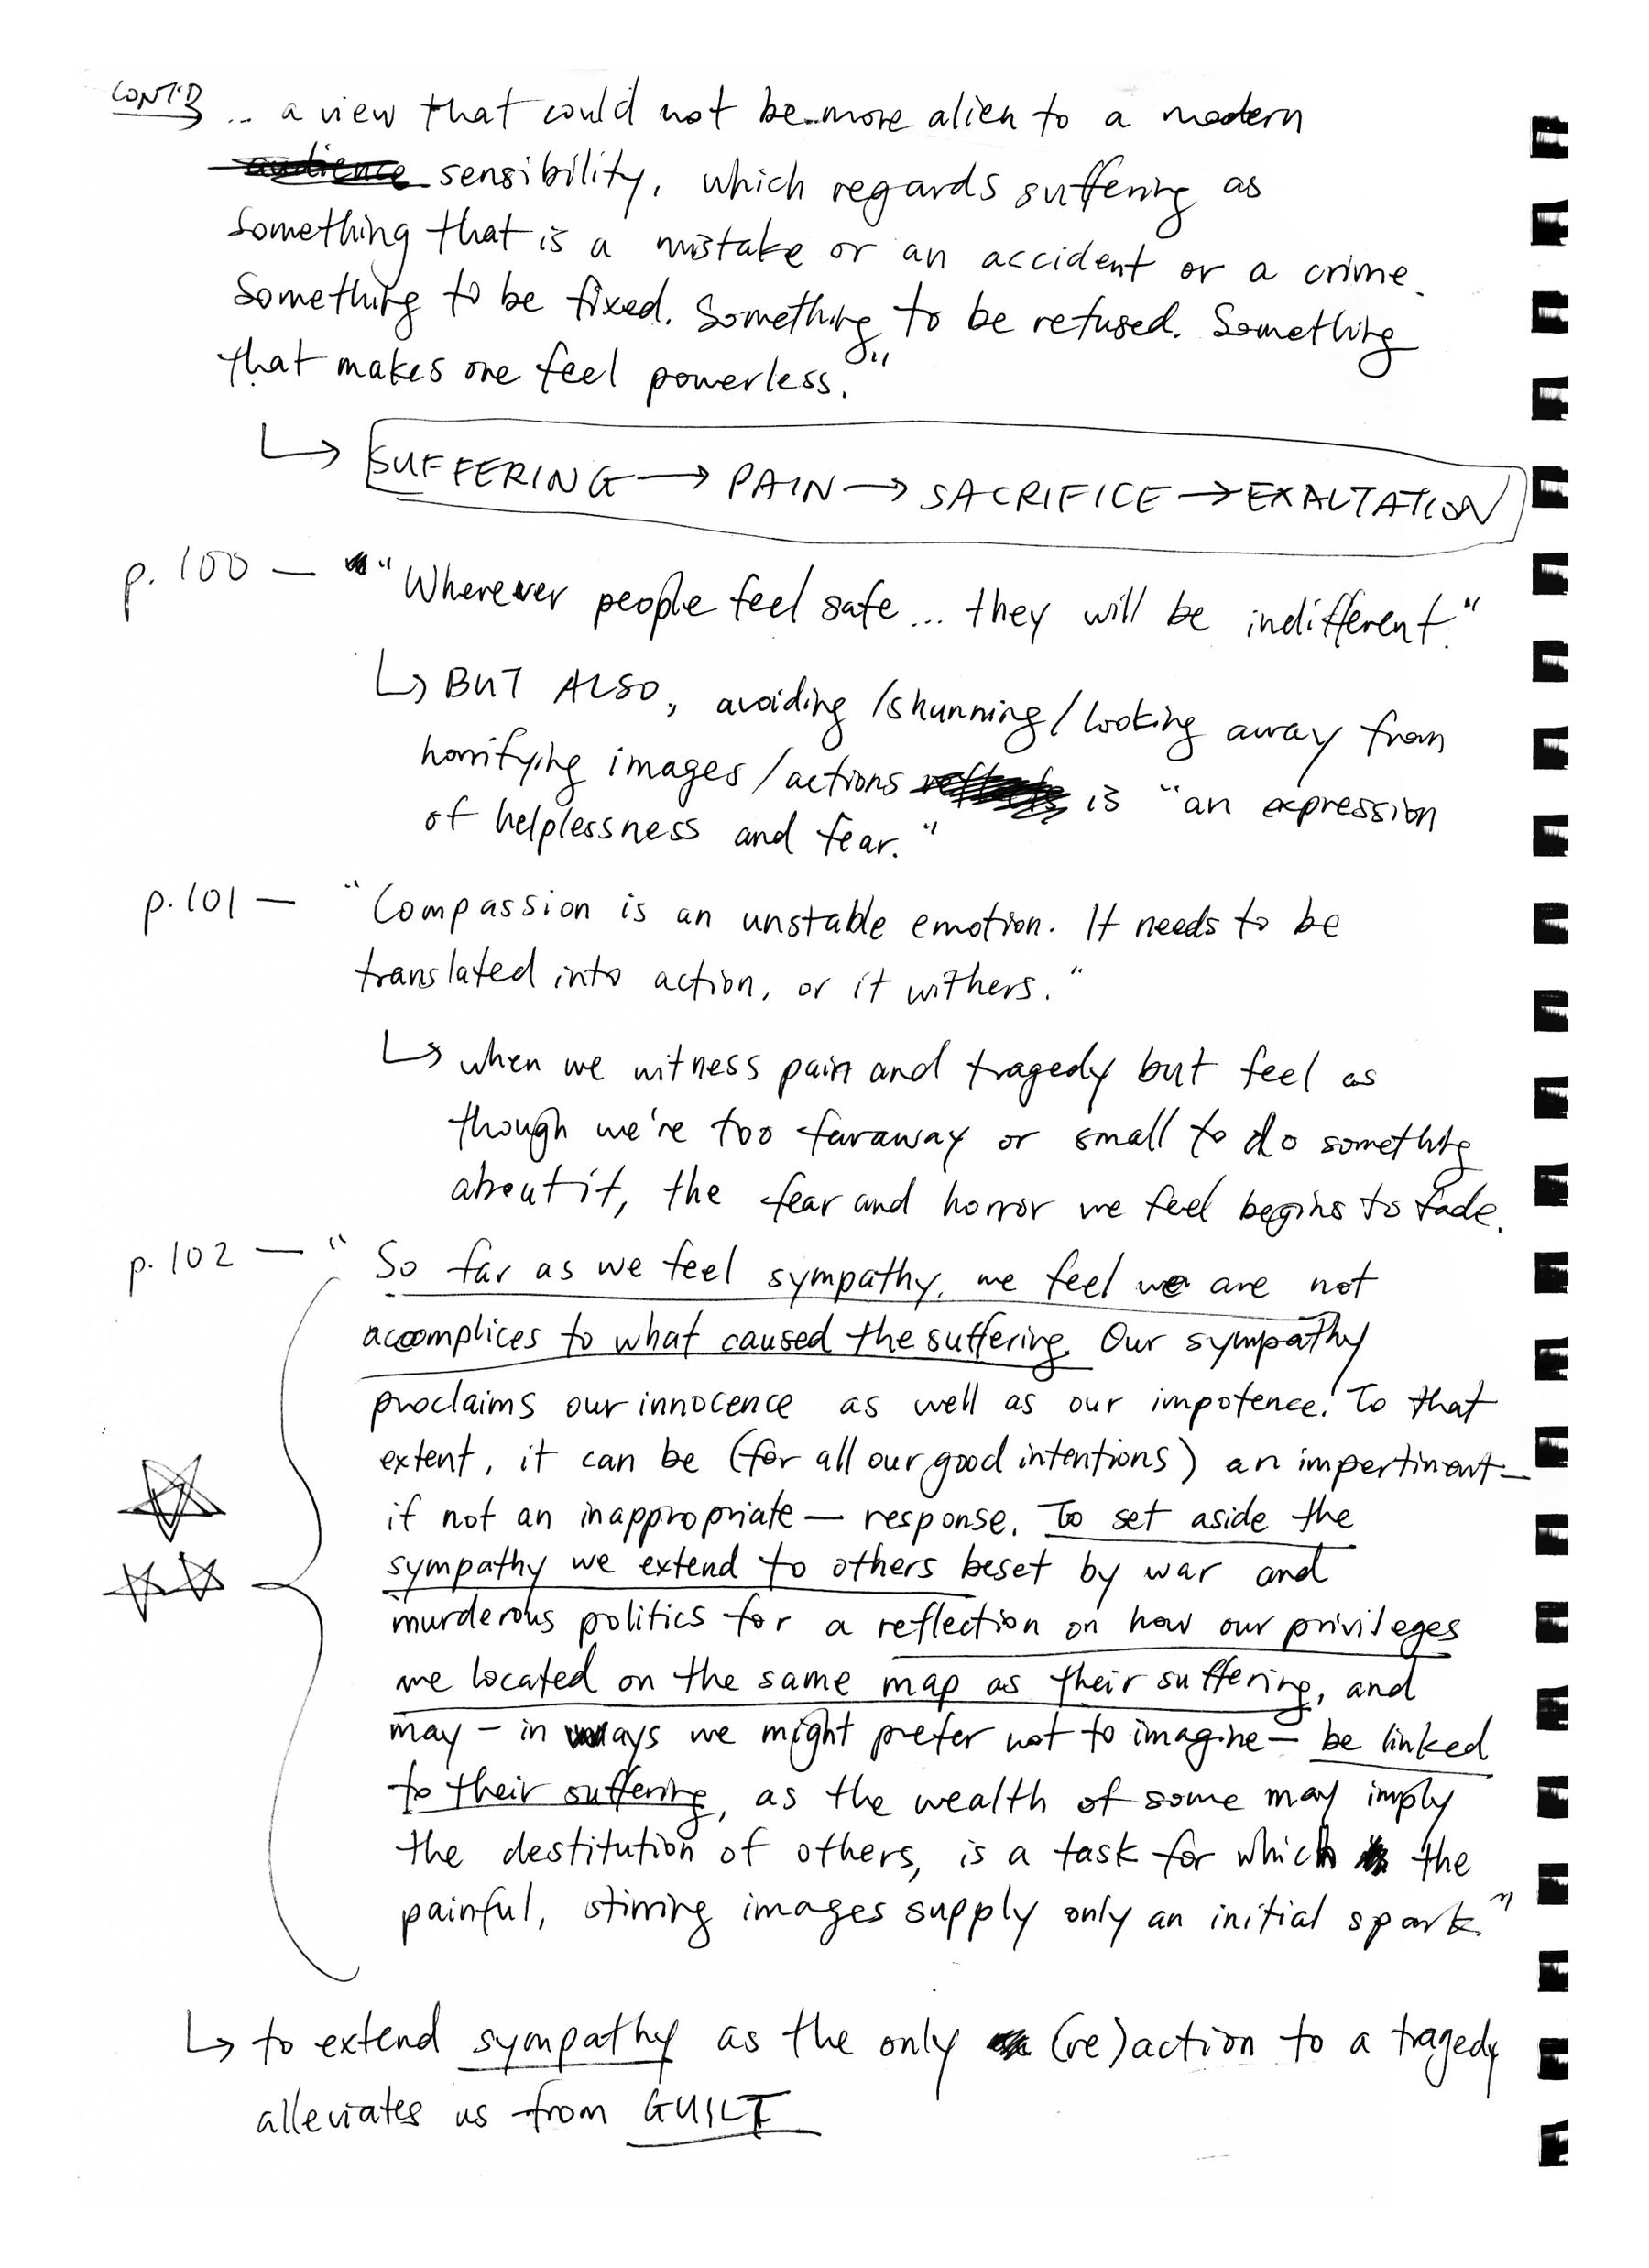 CONT'D ... a view that could not be more alien to a modern
audience sensibility, which regards suffering as
something that is a mistake or an accident or a crime.
Something to be fixed. Something to be refused. Something
that makes one feel powerless."
↳ SUFFERING → PAIN → SACRIFICE → EXALTATION
p. 100 — "Wherever people feel safe... they will be indifferent."
↳ BUT ALSO, avoiding /shunning/looking away from
horrifying images/actions reflects is "an expression
of helplessness and fear."
p. 101 — "Compassion is an unstable emotion. It needs to be
translated into action, or it withers."
↳ when we witness pain and tragedy but feel as
though we're too faraway or small to do something
about it, the fear and horror we feel begins to fade.
p. 102 — "So far as we feel sympathy, we feel we are not
accomplices to what caused the suffering. Our sympathy
proclaims our innocence as well as our impotence. To that
extent, it can be (for all our good intentions) an impertinent—
if not an inappropriate — response. To set aside the
sympathy we extend to others beset by war and
murderous politics for a reflection on how our privileges
are located on the same map as their suffering, and
may — in ways we might prefer not to imagine — be linked
to their suffering, as the wealth of some may imply
the destitution of others, is a task for which the
painful, stirring images supply only an initial spark."
↳ to extend sympathy as the only (re)action to a tragedy
alleviates us from GUILT